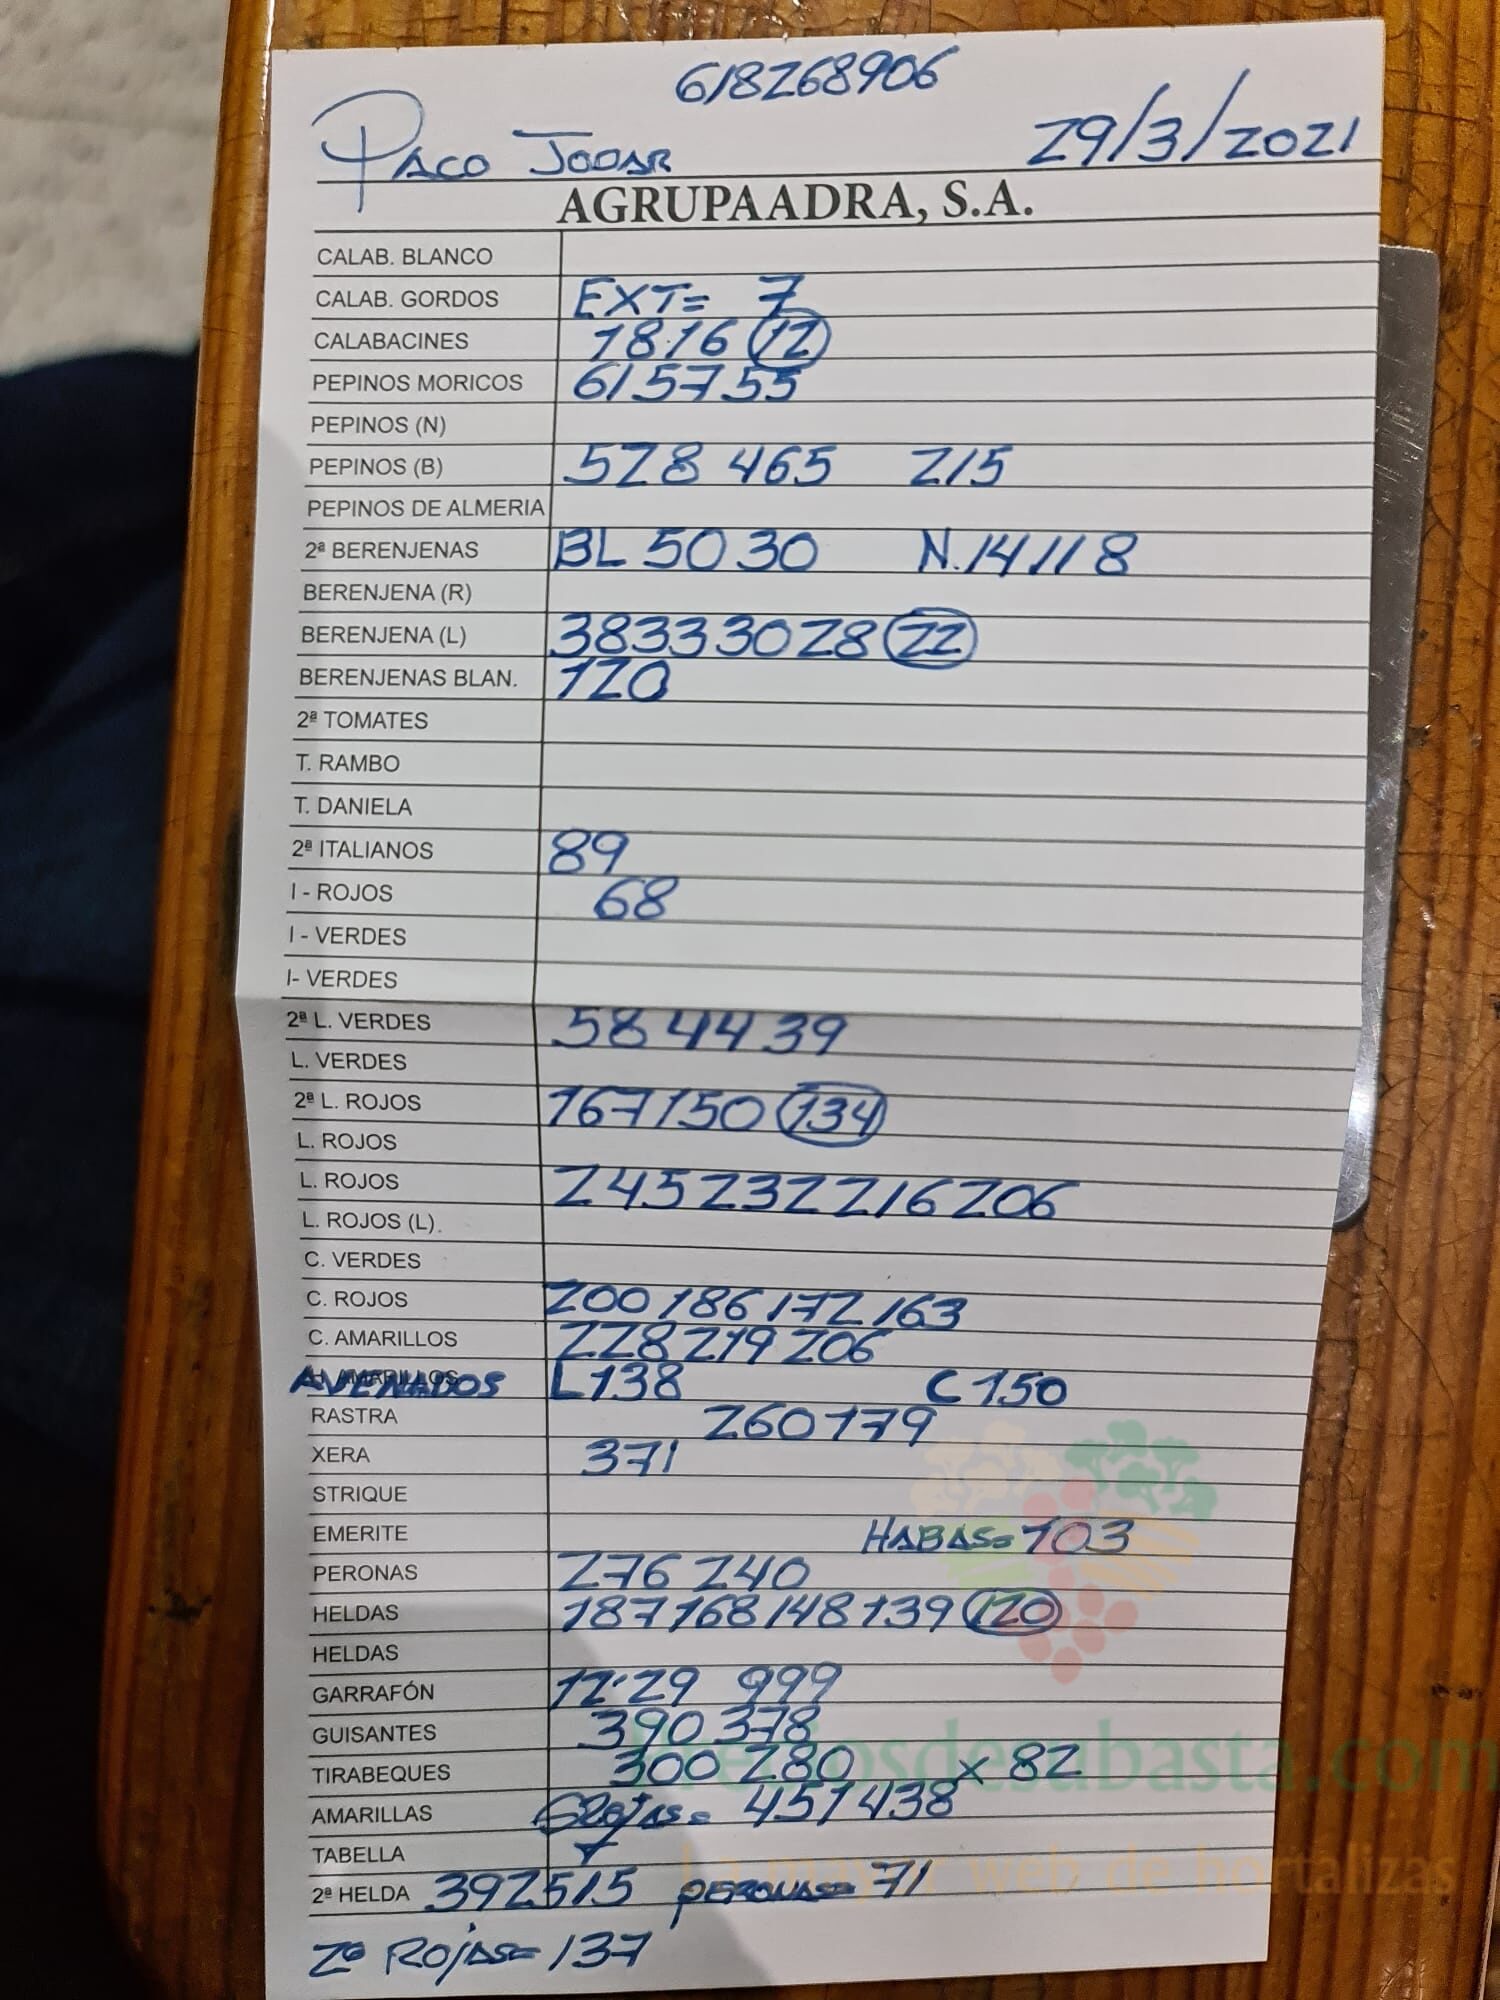 618268906
PACO JODAR 29/3/2021
AGRUPAADRA, S.A.
CALAB. BLANCO
CALAB. GORDOS EXT= 7
CALABACINES 18 16 12
PEPINOS MORICOS 61 57 55
PEPINOS (N)
PEPINOS (B) 528 465 215
PEPINOS DE ALMERIA
2ª BERENJENAS BL 50 30 N. 14 11 8
BERENJENA (R)
BERENJENA (L) 38 33 30 28 22
BERENJENAS BLAN. 120
2ª TOMATES
T. RAMBO
T. DANIELA
2ª ITALIANOS 89
I - ROJOS 68
I - VERDES
I- VERDES
2ª L. VERDES 58 44 39
L. VERDES
2ª L. ROJOS 167 150 134
L. ROJOS
L. ROJOS 245 232 216 206
L. ROJOS (L).
C. VERDES
C. ROJOS 200 186 172 163
C. AMARILLOS 228 219 206
AVENADOS L 138 C 150
RASTRA 260 179
XERA 371
STRIQUE
EMERITE HABAS= 103
PERONAS 276 240
HELDAS 187 168 148 139 120
HELDAS
GARRAFÓN 12'29 999
GUISANTES 390 378
TIRABEQUES 300 280 x 82
AMARILLAS ROJAS= 451 438
TABELLA
2ª HELDA 39 25 15 PERONAS= 71
2ª ROJAS= 137
preciosdesubasta.com
La mayor web de hortalizas